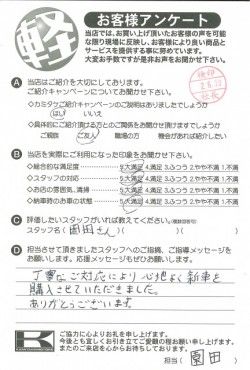 軽
お客様アンケート
当店では、お買い上げ頂いたお客様の声を可能
な限り現場に反映し、お客様により良い商品と
サービスを提供する事に努めています。
大変お手数ですが是非お声をお聞かせ下さい。
A 当店はご紹介を大切にしております。
ご紹介キャンペーンについてお聞かせ下さい。
◇カミタケご紹介キャンペーンのご説明はありましたでしょうか
はい いいえ
◇具体的にご紹介頂ける方とのご関係をお聞かせ頂けますでしょうか
ご親族 ご友人 職場の方 機会があれば紹介したい
B 当店を実際にご利用になった印象をお聞かせ下さい。
◇総合的な満足度 5.大満足 4.満足 3.ふつう 2.やや不満 1.不満
◇スタッフの対応 5.大満足 4.満足 3.ふつう 2.やや不満 1.不満
◇お店の雰囲気、清掃 5.大満足 4.満足 3.ふつう 2.やや不満 1.不満
◇納車時のお車の状態 5.大満足 4.満足 3.ふつう 2.やや不満 1.不満
C 評価したいスタッフがいれば教えてください。(複数回答可)
スタッフ名( 園田さん )( )
D 担当させて頂きましたスタッフへのご指摘、ご指導メッセージを
お願いします。応援メッセージもぜひお願いします。
丁寧なご対応により 心地よく新車を
購入させていただきました。
ありがとうございます。
K
ご協力に心よりお礼を申し上げます。
今後とも宜しくお引き立てご愛顧の程お願い申し上げます。
またのご来店を心からお待ちしております。
担当( 園田 )